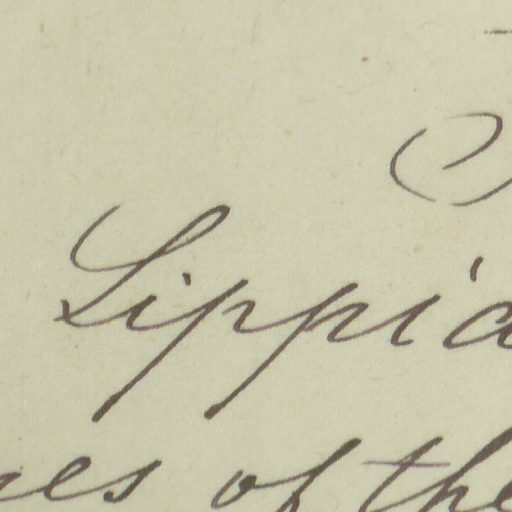 Lippia
es of the